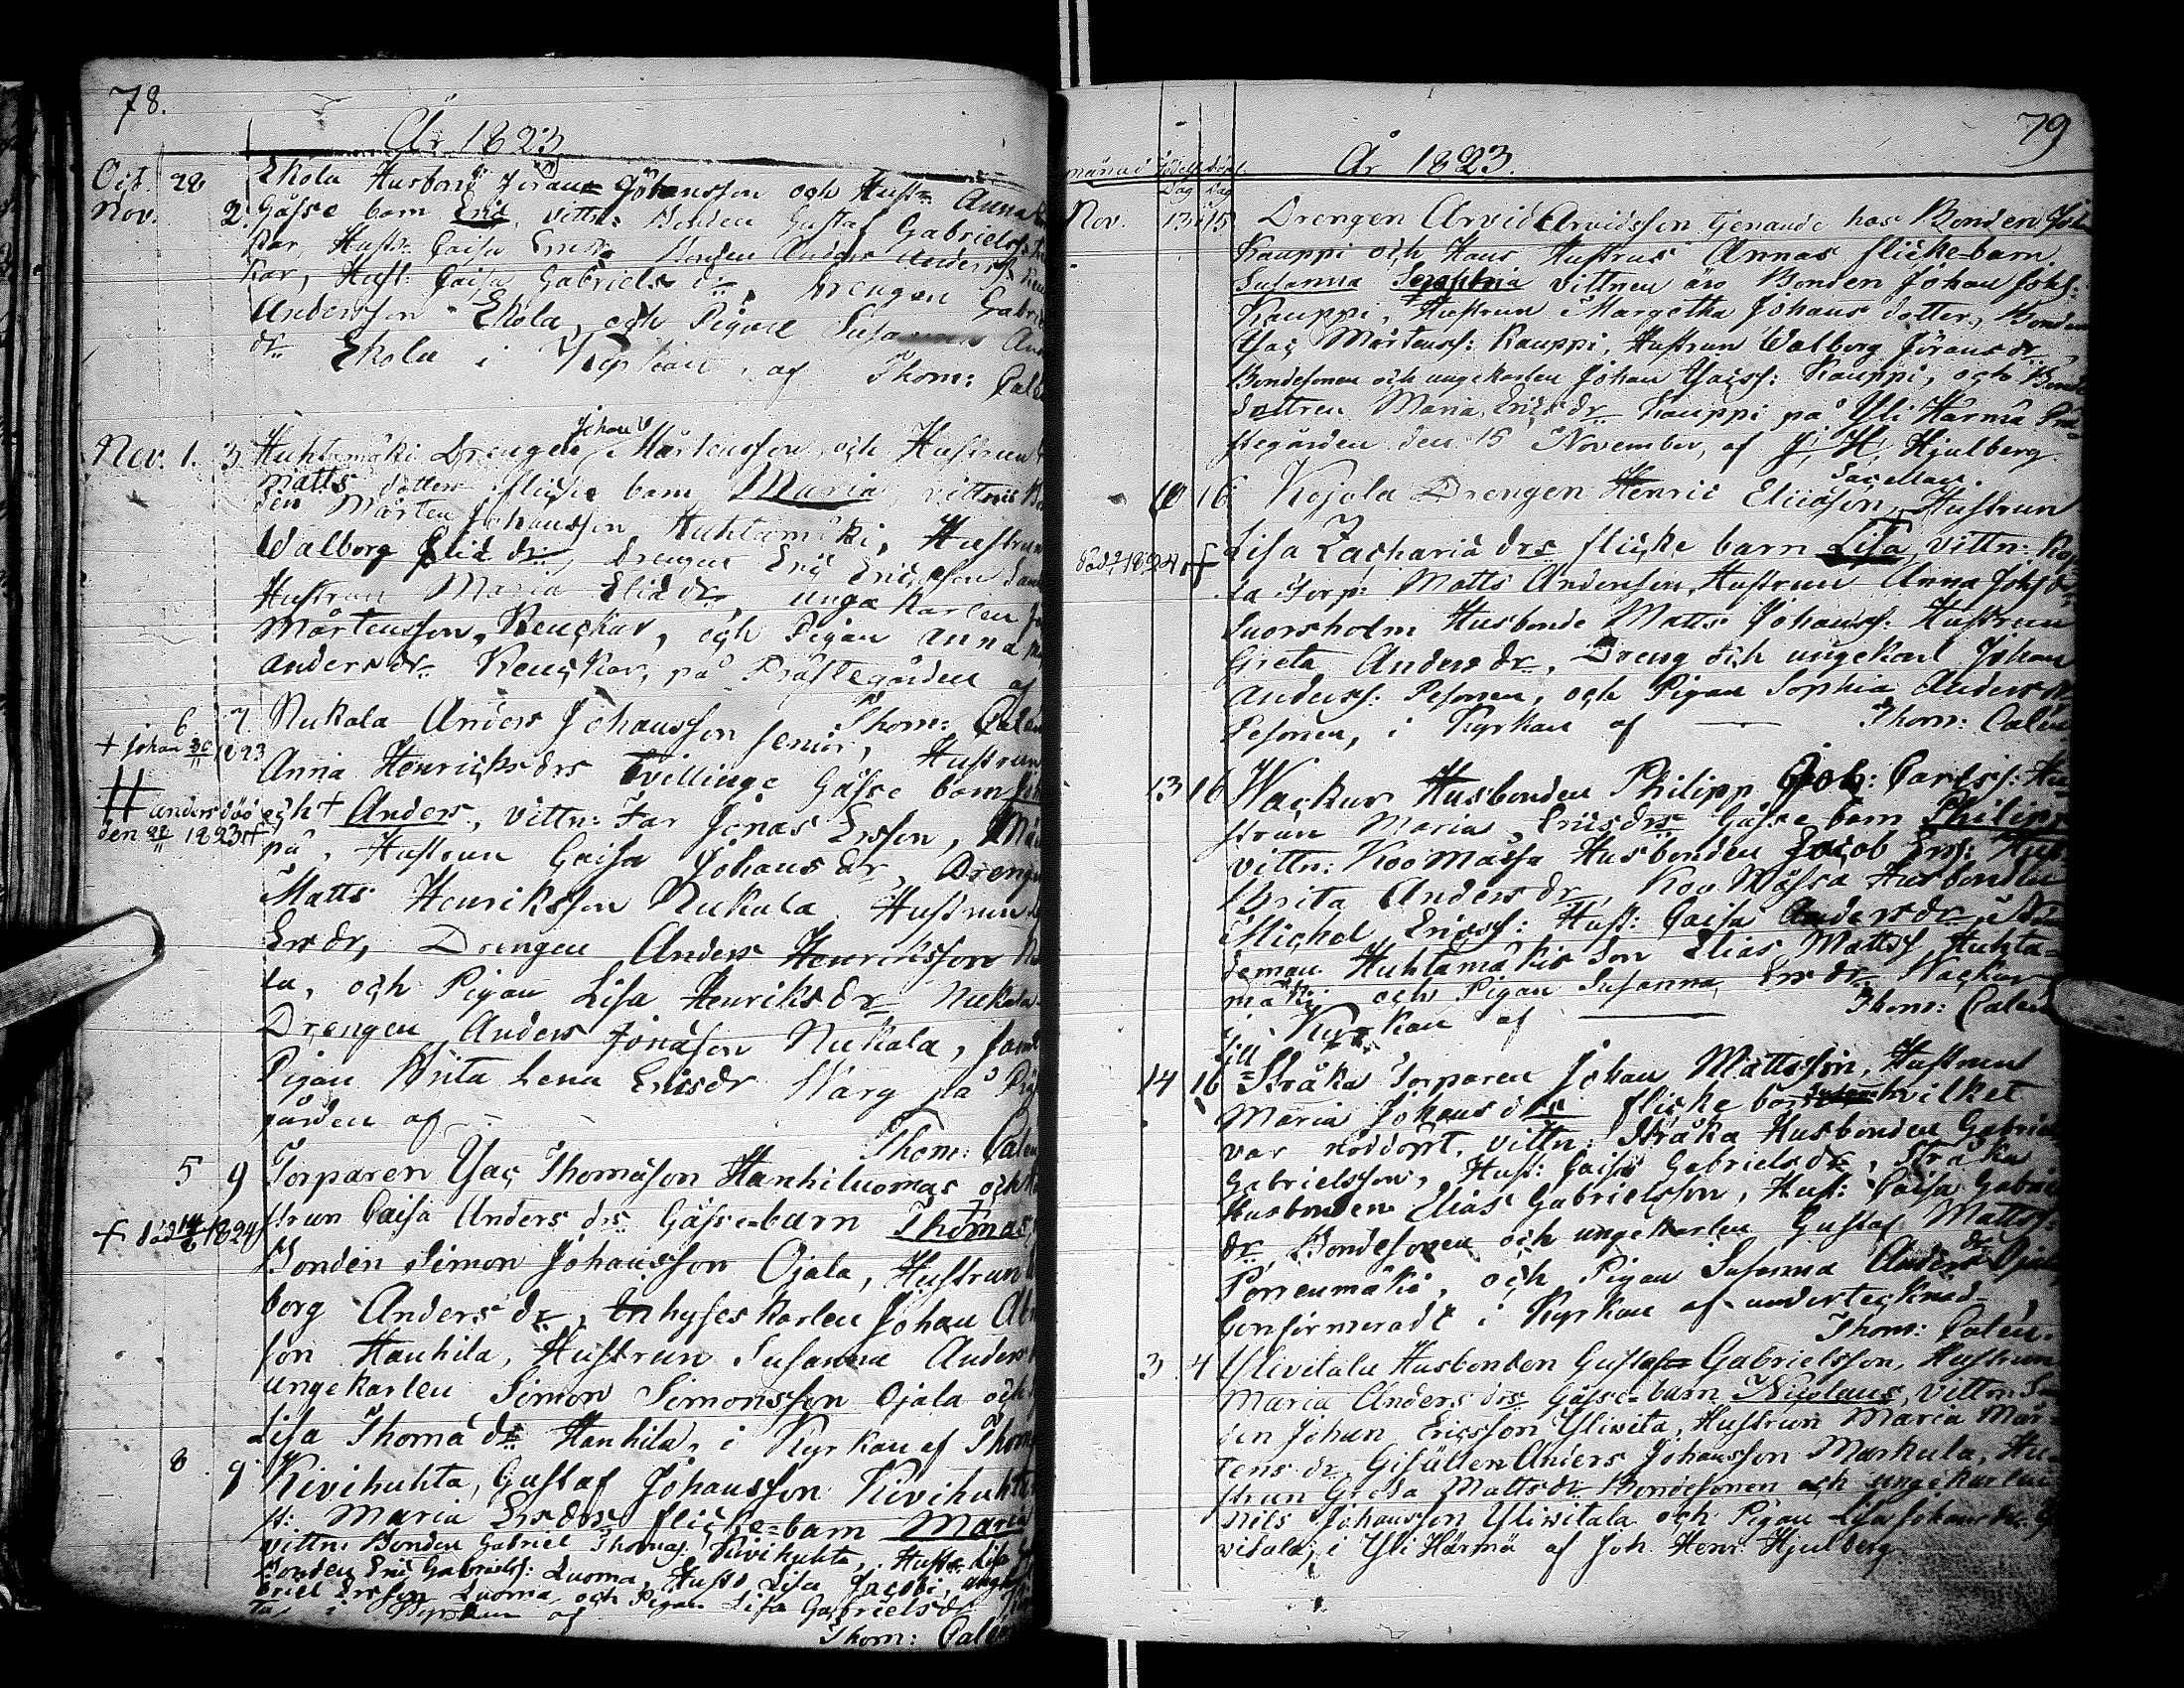 78.
År 1823
Oct. 28 Ekola Husbond Jöran Johansson och Hust: Anna
Nov. 2. Gåsse barn Eric, vittn: Bonden Gustaf Gabrielss:
kar, Hust: Caisa Bonden Anders Anderss:
kar, Hust: Caisa Gabriels dr, Drengen Gabri
Andersson Ekola, och Pigan Susanna An
dr Ekola i Kyrkan, af Thom: Calen
Nov. 1. 3 Huhtamäki Drengen Johan Mårtensson och Hustrun
Matts dotters flicke barn Maria, vittnen
den Mårten Johansson Huhtamäki, Hustrun
Walborg Eliæ dr: Drengen Eric Ericsson
Hustrun Maria Eliæ dr unga karlen
Mårtensson, Kenckar, och Pigan Anna
Anders dr Kenckar, på Prästegården af
Thom: Calen
6 7. Nukala Anders Johansson senior, Hustrun
+ Johan 30/11 1823
Anna Henrichsdrs Tvillinge Gåsse barn Joh
# anders död och + Anders, vittn: Far Jonas Ersson,
den 22/11 1823 #
på, Hustrun Caisa Johans dr, Drengen
Matts Henriksson Nukala Hustrun
Ers dr, Drengen Anders Henriksson Nu
la, och Pigan Lisa Henriks dr Nukala
Drengen Anders Jonasson Nukala, samt
Pigan Brita Lena Ericsdr Warg på Prä
gården af
Thom: Calen
5 9 Torparen Isac Thomason Hanhiluomas och
strun Caisa Anders drs Gåsse-barn Thomas,
+ död 14/6 1824
Bonden Simon Johansson Ojala, Hustrun
borg Anders dr, Inhyses karlen Johan
son Hanhila, Hustrun Susanna Anders
ungekarlen Simon Simonsson Ojala och
Lisa Thomæ dr Hanhila, i Kyrkan af Thom
8. 9 Kivihuhta, Gustaf Johansson Kivihuhta
st: Maria Ersdrs flicke-barn Maria
vittn: Bonden Gabriel Thomæs: Kivihuhta, Hust: Lisa
Bonden Eric Gabrielss: Luoma, Hust: Lisa Jacobi,
briel Ersson Luoma, och Pigan Lisa Gabrielsdr
ta i Kyrkan af
Thom: Calen
79
månad född döpt År 1823.
Dag Dag
Nov. 13 15 Drengen Arvid Arvidsson tjenande hos Bonden Joh
Kauppi och Hans Hustrus Annas flicke-barn
Susanna Serafina vittnen äro Bonden Johan Johs:
Kauppi, Hustrun Margetha Johans dotter, Bonden
Isac Mårtenss: Kauppi, Hustrun Walborg Jörans dr
Bondesonen och ungekarlen Johan Isacss: Kauppi, och Bonde
dottren Maria Erics dr Kauppi på Yli Härmä Præ
stegården den 15 November, af J. H. Hjulberg
Sacellan.
10 16 Kojola Drengen Henric Eliæson, Hustrun
död 1824 + Lisa Zachariæ drs flicke barn Lisa, vittn: Kojo
la Torp: Matts Andersson, Hustrun Anna Johs dr
Luorsholm Husbonde Matts Johanss: Hustrun
Greta Anders dr, Dreng och ungekarl Johan
Anderss: Pesonen, och Pigan Sophia Anders dr
Pesonen, i Kyrkan af Thom: Calen
13 16 Wackur Husbonden Philipp Joh: Carlss: Hu
strun Maria Ericsdrs Gåsse barn Philip
vittn: Koomässa Husbonden Jacob Ers: Hust
Brita Anders dr, Koomässa Husbonden
Michel Ericss: Hust: Caisa Anders dr,
deman Huhtamäkis Son Elias Mattss Huhta-
mäki och Pigan Susanna Ers dr Wackur
i Kyrkan af Thom: Calen
Lill
14 16 Stråka Torparen Johan Mattsson, Hustrun
Maria Johans drs flicke barn hvilket
var nöddöpt, vittn: Stråka Husbonden Gabriel
Gabrielsson, Hust: Caisa Gabriels dr, Stråka
Husbonden Elias Gabrielsson, Hust: Caisa Gabriels
dr Bondesonen och ungekarlen Gustaf Mattss:
Porrenmäki, och Pigan Susanna Anders dr Ojala
Confirmeradt i Kyrkan af undertecknad
Thom: Calen.
3 4 Yliwitala Husbonden Gustaf Gabrielsson, Hustrun
Maria Anders drs Gåsse-barn Nicolaus, vittn:
den Johan Ericsson Yliwita, Hustrun Maria Mår-
tens dr, Gesällen Anders Johansson Markula, Hu-
strun Greta Matts dr Bondesonen och ungekarlen
Nils Johansson Yliwitala och Pigan Lisa Johans dr
witala, i Yli Härmä af Joh. Henr. Hjulberg